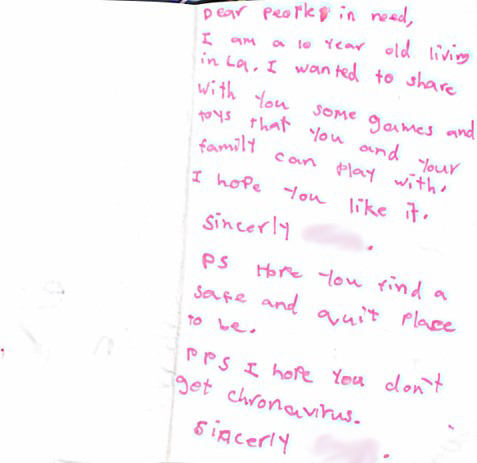 Dear people in need,
I am a 10 year old living
in La. I wanted to share
with you some games and
toys that you and your
family can play with.
I hope you like it.
Sincerly
PS Hope you find a
safe and quit place
to be.
PPS I hope you don't
get chronavirus.
Sincerly